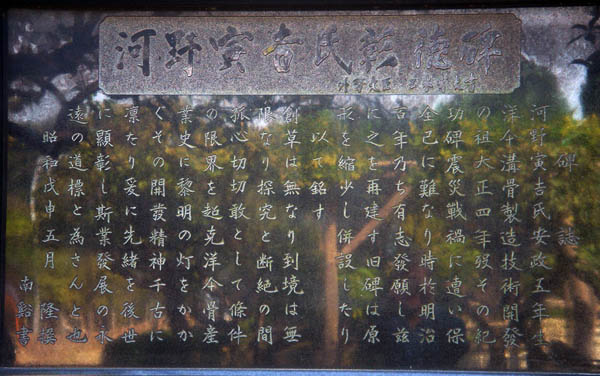 河野寅吉氏彰徳碑
碑誌
河野寅吉氏安政五年生
洋傘溝骨製造技術開發
の祖大正四年歿その紀
功碑震災戦禍に遭い保
全已に難なり時於明治
百年乃ち有志發願し茲
に之を再建す旧碑は原
形を縮少し併設したり
以て銘す
創草は無なり到境は無
限なり探究と断絶の間
孤心切切敢として條件
の限界を超克洋傘骨産
業史に黎明の灯をかか
ぐその開發精神千古に
凛たり爰に先緒を後世
に顯彰し斯業發展の永
遠の道標と為さんと也
昭和戊申五月 隆撰
南谿書